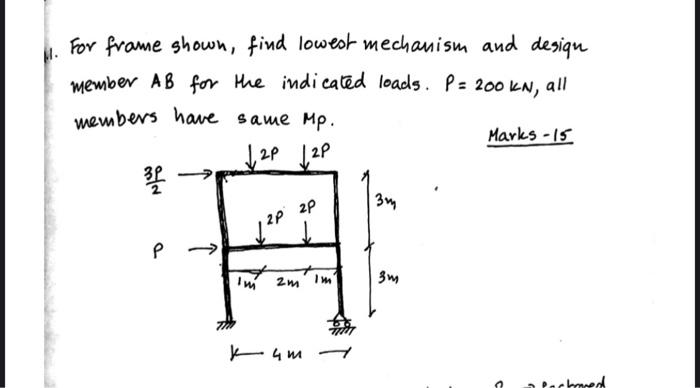 11. For frame shown, find lowest mechanism and design
member AB for the indicated loads. P = 200 kN, all
members have same Mp.
Marks - 15
2P 2P
3P/2
3m
2P 2P
P
1m 2m 1m
3m
4m